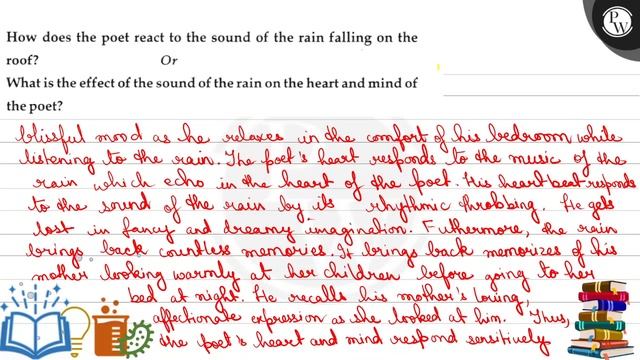 PW
How does the poet react to the sound of the rain falling on the
roof? Or
What is the effect of the sound of the rain on the heart and mind of
the poet?
blissful mood as he relaxes in the comfort of his bedroom while
listening to the rain. The poet's heart responds to the music of the
rain which echo in the heart of the poet. His heartbeat responds
to the sound of the rain by its rhythmic throbbing. He gets
lost in fancy and dreamy imagination. Futhermore, the rain
brings back countless memories. It brings back memorizes of his
mother looking warmly at her children before going to her
bed at night. He recalls his mother's loving,
affectionate expression as she looked at him. Thus,
the poet's heart and mind respond sensitively